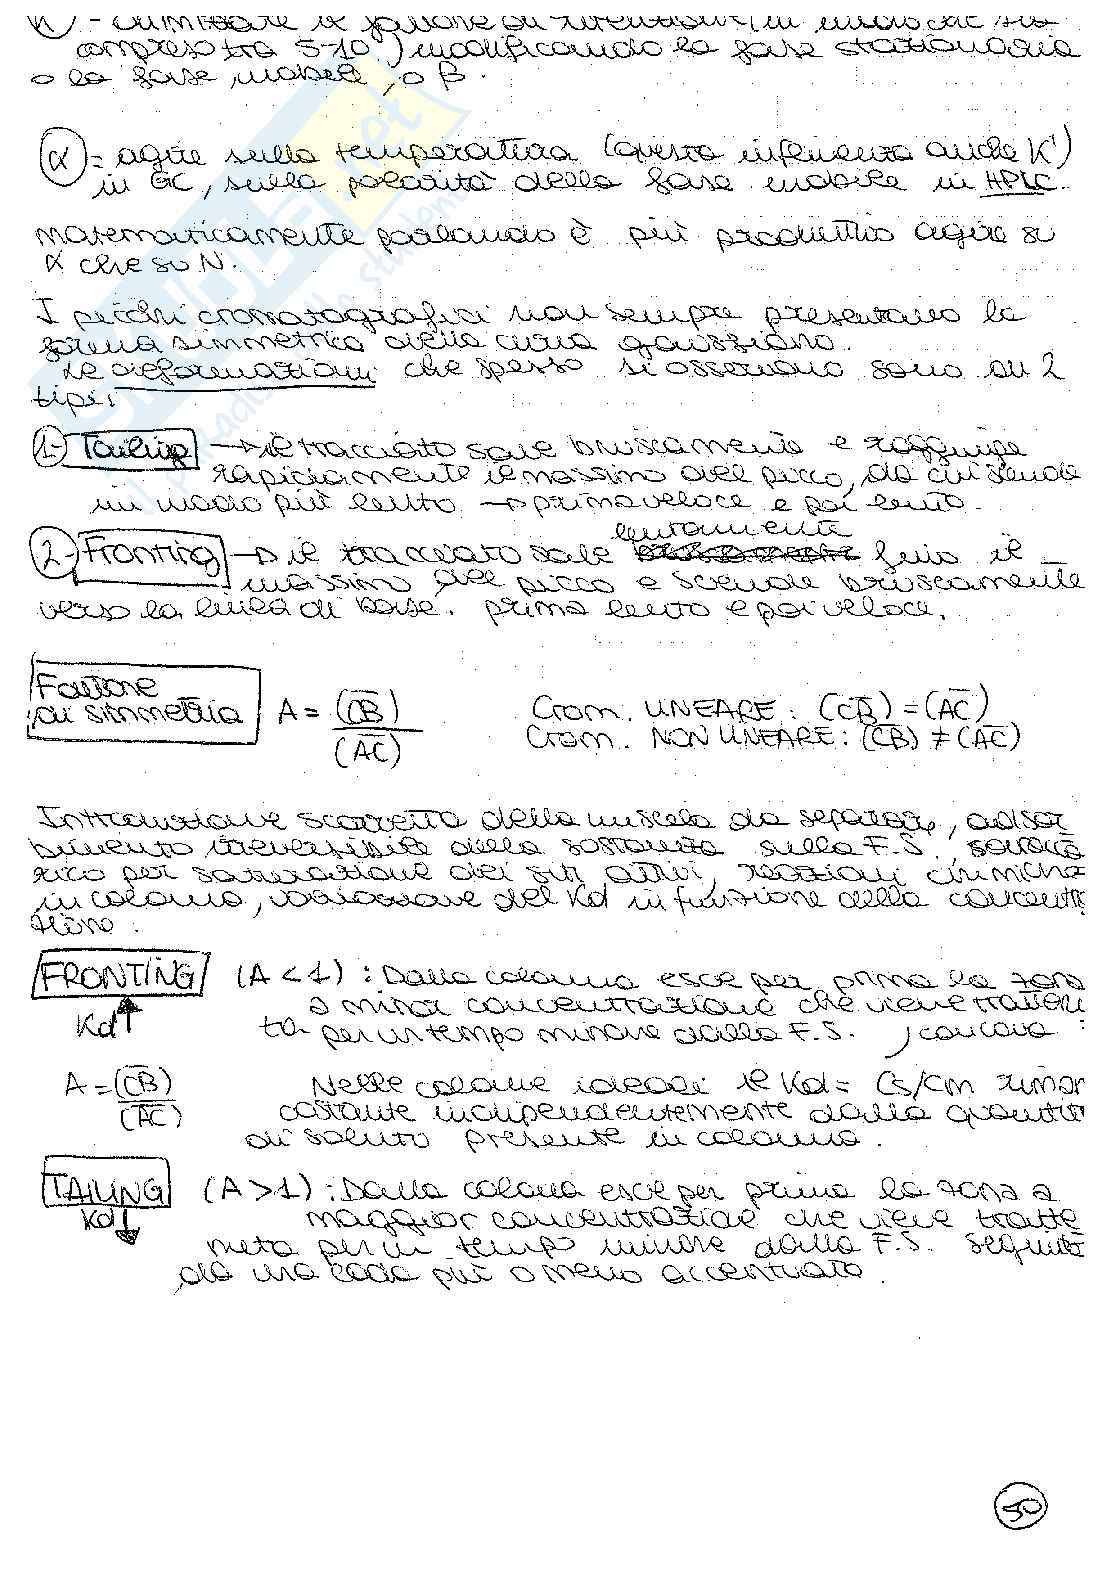 compreso tra 5-10) modificando la fase stazionaria
o la fase mobile, o β.
α = agire sulla temperatura (questa influenza anche K')
in GC, sulla polarità della fase mobile in HPLC.
Matematicamente parlando è più produttivo agire su
α che su N.
I picchi cromatografici non sempre presentano la
forma simmetrica della curva gaussiana.
Le deformazioni che spesso si osservano sono di 2
tipi:
1- Tailing → il tracciato sale bruscamente e raggiunge
rapidamente il massimo del picco, da cui scende
in modo più lento → prima veloce e poi lento.
lentamente
2- Fronting → il tracciato sale fino il
massimo del picco e scende bruscamente
verso la linea di base. prima lento e poi veloce.
Fattore
di simmetria A = (CB)/(AC) Crom. LINEARE: (CB) = (AC)
Crom. NON LINEARE: (CB) ≠ (AC)
Introduzione scorretta della miscela da separare, adsor
bimento irreversibile della sostanza sulla F.S., sovracca
rico per saturazione dei siti attivi, reazioni chimiche
in colonna, variazione del Kd in funzione della concentra
zione.
FRONTING (A < 1): Dalla colonna esce per prima la zona
a minor concentrazione che viene trattenu
Kd↑ ta per un tempo minore dalla F.S.
A = (CB)/(AC) Nelle colonne ideali il Kd = Cs/Cm riman
costante indipendentemente dalla quantità
di soluto presente in colonna.
TAILING (A > 1): Dalla colonna esce per prima la zona a
Kd↓ maggior concentrazione che viene tratte
nuta per un tempo minore dalla F.S. seguita
da una coda più o meno accentuata.
50